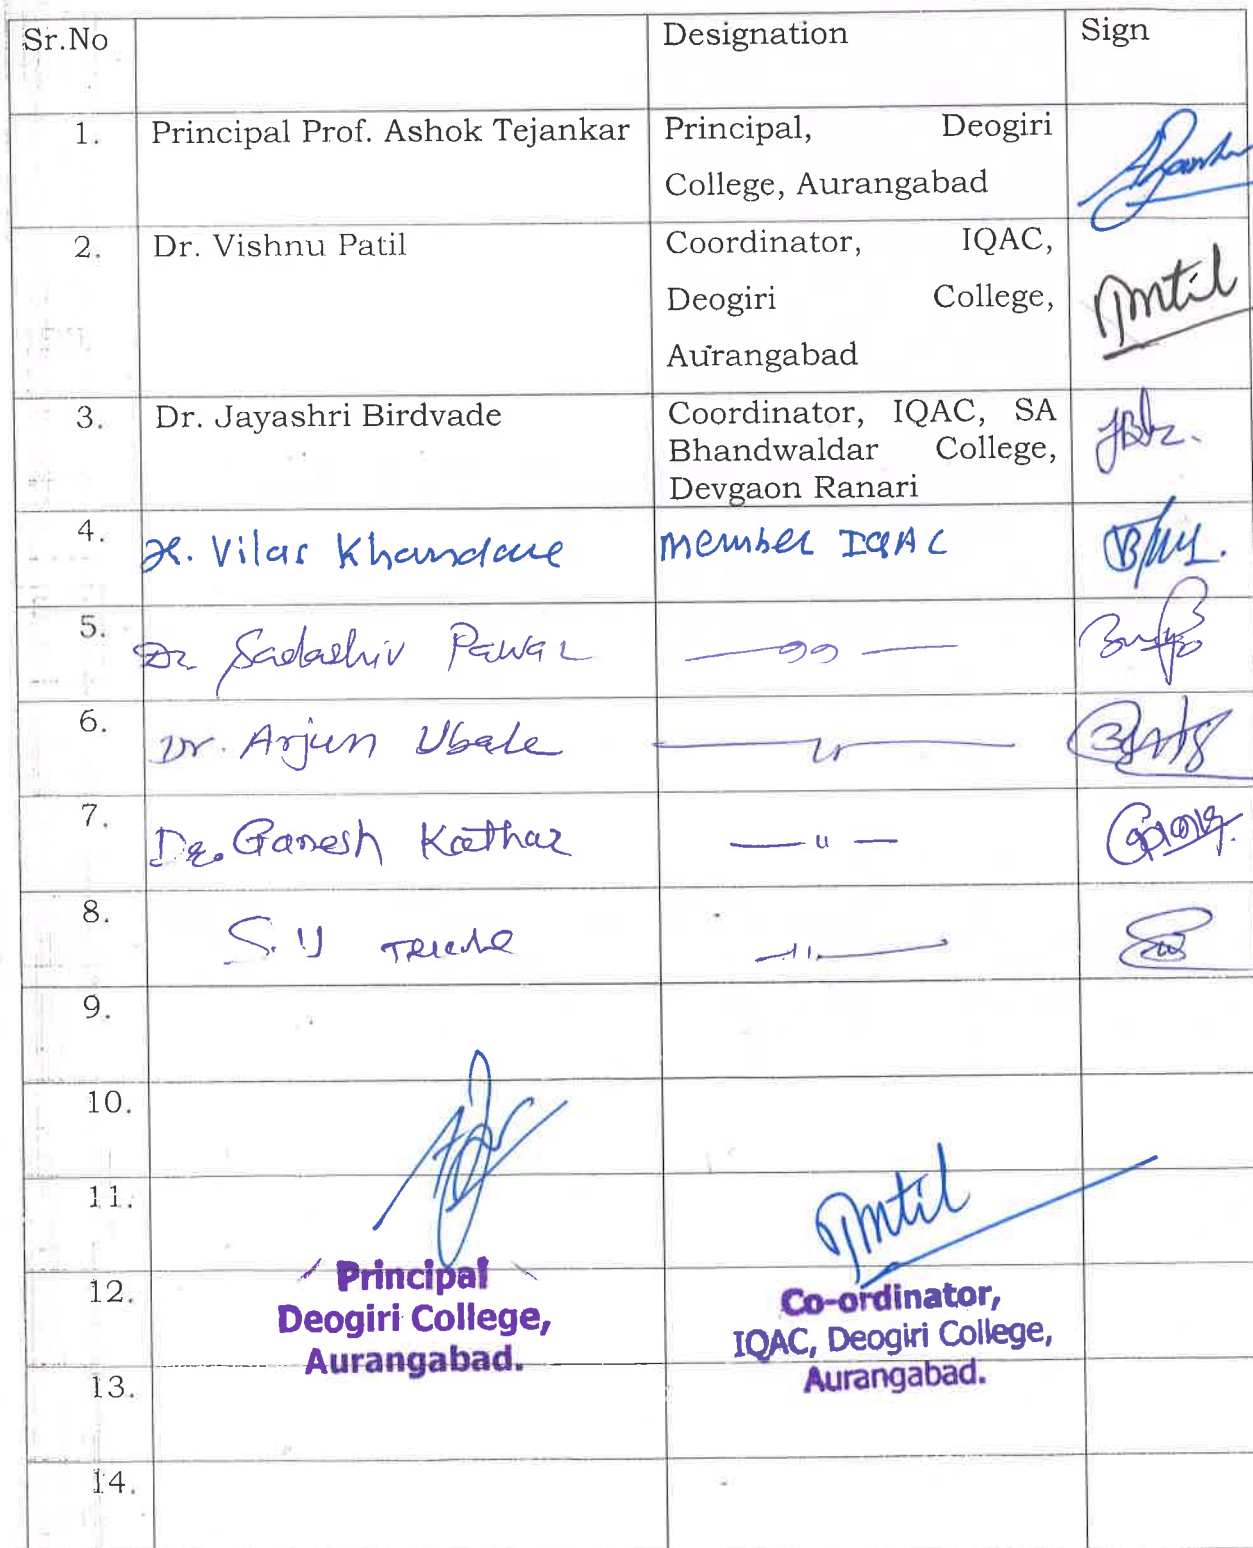 Sr.No Designation Sign
1. Principal Prof. Ashok Tejankar Principal, Deogiri
College, Aurangabad
2. Dr. Vishnu Patil Coordinator, IQAC,
Deogiri College,
Aurangabad
3. Dr. Jayashri Birdvade Coordinator, IQAC, SA
Bhandwaldar College,
Devgaon Ranari
4. Vilas Khandare member IQAC
5. Dr Sadashiv Pawar —〃—
6. Dr. Arjun Ubale —〃—
7. Dr. Ganesh Kathar —〃—
8. S. U —〃—
9.
10.
11.
12.
Principal
Deogiri College,
Aurangabad.
Co-ordinator,
IQAC, Deogiri College,
Aurangabad.
13.
14.